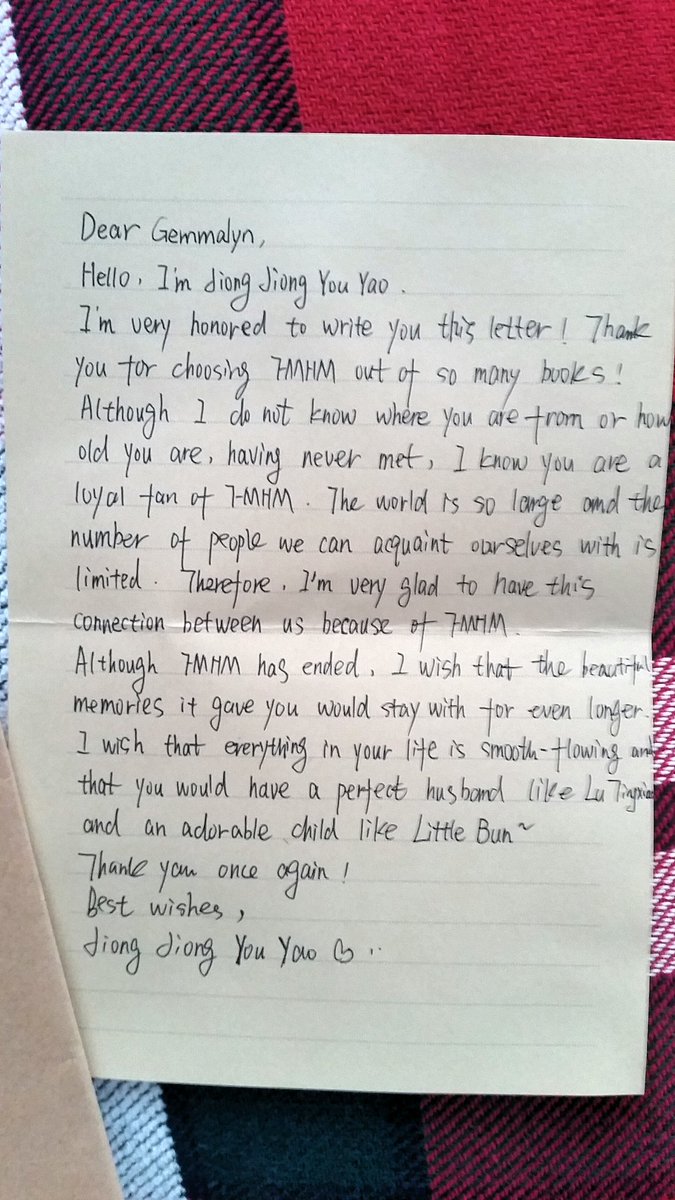 Dear Gemmalyn,
Hello, I'm Jiong Jiong You Yao.
I'm very honored to write you this letter! Thank
you for choosing 7MHM out of so many books!
Although I do not know where you are from or how
old you are, having never met, I know you are a
loyal fan of 7-MHM. The world is so large and the
number of people we can acquaint ourselves with is
limited. Therefore, I'm very glad to have this
connection between us because of 7MHM.
Although 7MHM has ended, I wish that the beautiful
memories it gave you would stay with for even longer.
I wish that everything in your life is smooth-flowing and
that you would have a perfect husband like Lu Tingxiao
and an adorable child like Little Bun~
Thank you once again!
Best wishes,
Jiong Jiong You Yao